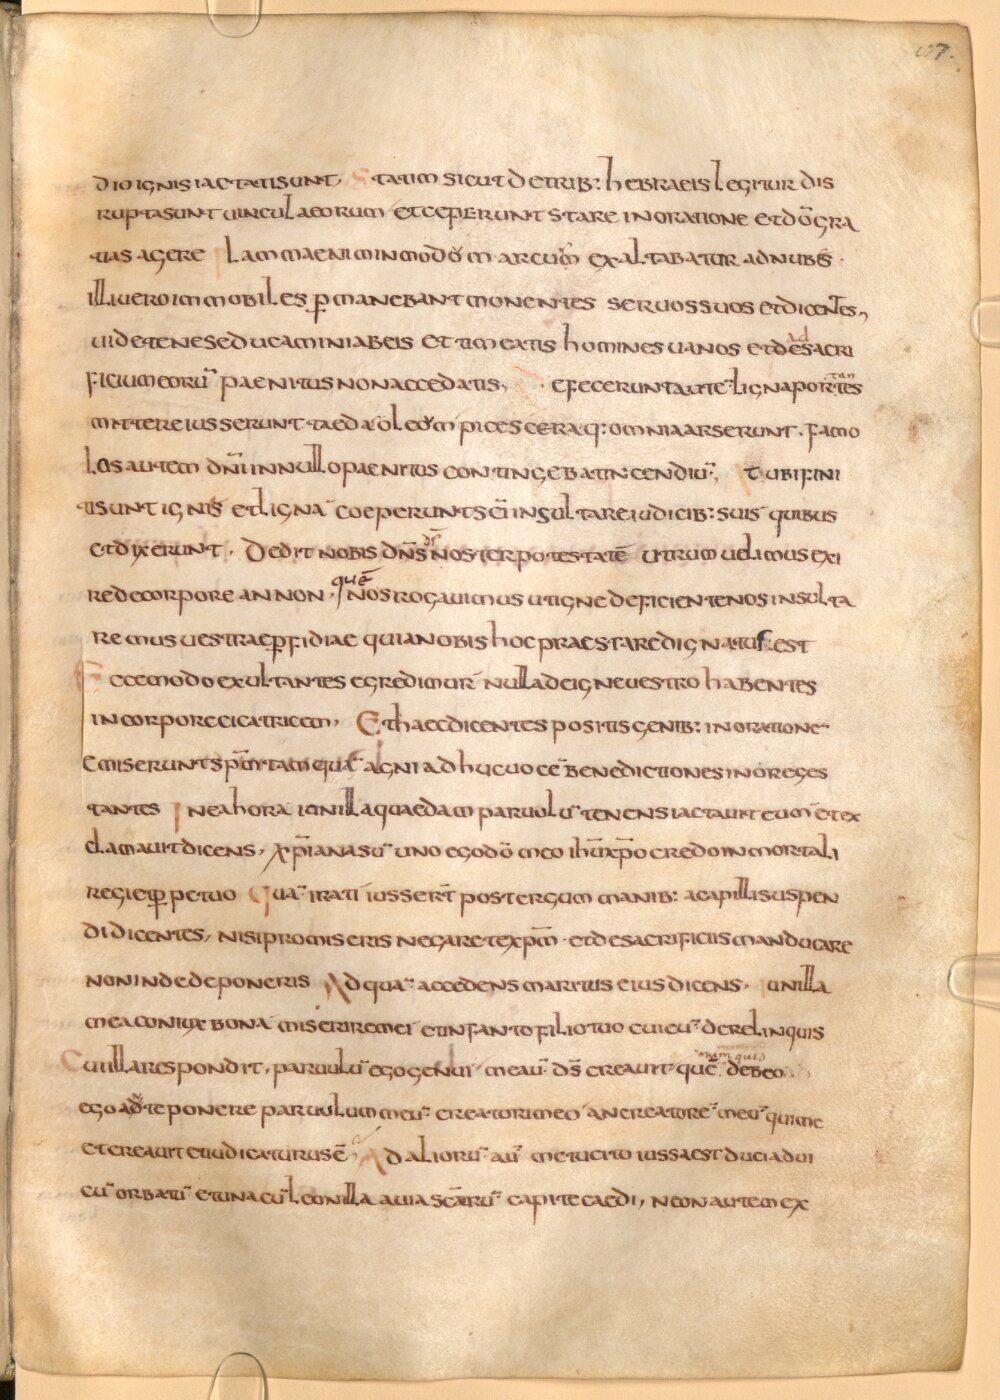 157.
dio ignis iactati sunt. Statim sicut de trib: hebraeis legitur dis
rupta sunt uincula eorum et ceperunt stare in oratione et dō gra
tias agere Flamma enim in modum arcum exaltabatur ad nubes.
illi uero immobiles p̄manebant monentes seruos suos et dicentes,
uidete ne seducamini ab eis et timeatis homines uanos et ad
de sacri
ficium eorū paenitus non accedatis, Defecerunt autē ligna portantes
mittere iusserunt taeda oleum pices cera q: omnia arserunt. famo
los autem dn̄i in nullo paenitus contingebat incendiū, At ubi fini
ti sunt ignis et ligna coeperunt sc̄i insultare iudicib: suis quibus
et dixerunt. Dedit nobis dn̄s ds̄ noster potestatē utrum uelimus exi
re de corpore an non, quē nos rogauimus ut igne deficiente nos insulta
remus uestrae p̄fidiae quia nobis hoc praestare dignatus est
Ecce modo exultantes egredimur nulla de igne uestro habentes
in corpore cicatricem, Et haec dicentes positis genib: in oratione
emiserunt sp̄m tam quā agni adhuc uocē benedictiones in ore ges
tantes In ea hora ionilla quaedam paruolū tenens iactauit eum et ex
clamauit dicens, xp̄iana sū uno ego dō meo ih̄u xp̄o credo inmortali
regi et p̄petuo Quā irati iussert̄ post ergum manib: a capilli suspen
di dicentes, nisi promiseris negare te xp̄m et de sacrificiis manducare
non inde deponeris Ad quā accedens maritus eius dicens, iunilla
mea coniux bona miserire mei et infanto filio tuo cui eū derelinquis
Cui illa respondit, paruulū ego genui meaū ds̄ creauit quē numquid debeo
ego ad te ponere paruulum meū creatori meo an creatorē meū qui me
et creauit et iudicaturus ē Ad aliorū aū metu cito iussa est duci ad ui
cū orbatū et una cū leonilla auia sc̄arū capite caedi, neon autem ex